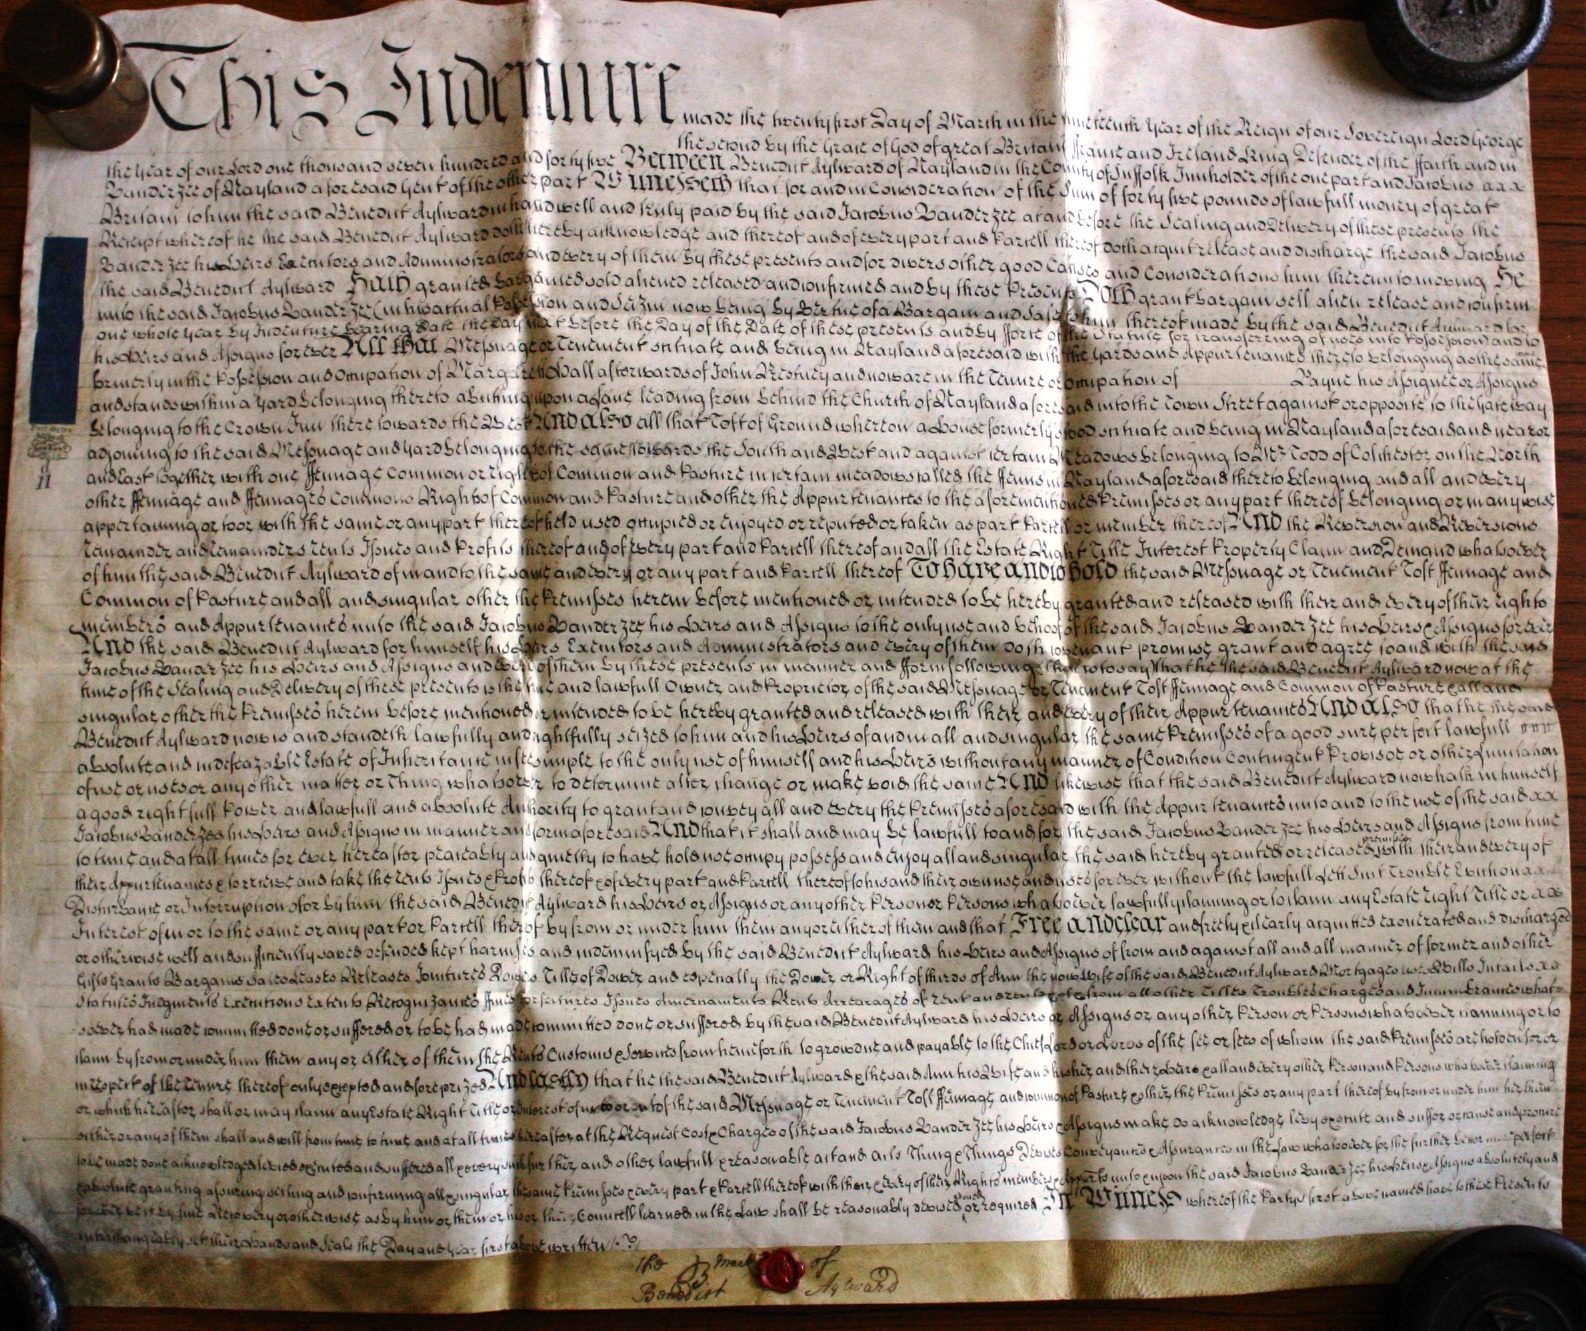 This Indenture made the twenty first Day of March in the nineteenth Year of the Reign of our Sovereign Lord George
the second by the Grace of God of great Britain France and Ireland King Defender of the ffaith and in
the Year of our Lord one thousand seven hundred and forty five Between Benedict Aylward of Nayland in the County of Suffolk Innholder of the one part and Jacobus
Vanderzee of Nayland aforesaid Gent of the other part Witnesseth that for and in Consideration of the Sum of forty five pounds of lawfull money of great
Britain to him the said Benedict Aylward in hand well and truly paid by the said Jacobus Vanderzee at and before the Sealing and Delivery of these presents the
Receipt whereof he the said Benedict Aylward doth hereby acknowledge and thereof and of every part and Parcell thereof doth acquit release and discharge the said Jacobus
Vanderzee his Heirs Executors and Administrators and every of them by these presents and for divers other good Causes and Considerations him thereunto moving He
the said Benedict Aylward Hath granted bargained sold aliened released and confirmed and by these Presents Doth grant bargain sell alien release and confirm
unto the said Jacobus Vanderzee (in his actual Possession and Seizin now being by Vertue of a Bargain and Sale to him thereof made by the said Benedict Aylward for
one whole year by Indenture bearing Date the Day next before the Day of the Date of these presents and by fforce of the Statute for transferring of uses into Possession and to
his Heirs and Assigns for ever All that Messuage or Tenement scituate and being in Nayland aforesaid with the Yards and Appurtenances thereto belonging as the same
formerly in the Possession and Occupation of Margaret Hall afterwards of John and now are in the Tenure or Occupation of Payne his Assignee or Assigns
and stands within a yard belonging thereto abutting upon a Lane leading from behind the Church of Nayland aforesaid into the Town Street against or opposite to the Gateway
belonging to the Crown Inn there towards the West And also all that Toft of Ground whereon a House formerly stood scituate and being in Nayland aforesaid and near or
adjoining to the said Messuage and yard belonging to the same towards the South and West and against certain Meadows belonging to Mr Todd of Colchester on the North
and East together with one ffennage Common or right of Common and Pasture in certain meadows called the ffenns in Nayland aforesaid thereto belonging and all and every
other ffennage and ffennages Commons Right of Common and Pasture and other the Appurtenances to the aforementioned Premisses or any part thereof belonging or in any wise
appertaining or to or with the same or any part thereof held used occupied or enjoyed or reputed or taken as part Parcell or member thereof And the Reversion and Reversions
remainder and remainders rents Issues and Profits thereof and of every part and Parcell thereof and all the Estate Right Title Interest Property Claim and Demand whatsoever
of him the said Benedict Aylward of in and to the same and every or any part and Parcell thereof To have and to hold the said Messuage or Tenement Toft ffennage and
Common of Pasture and all and singular other the Premisses herein before mentioned or intended to be hereby granted and released with their and every of their rights
members and Appurtenances unto the said Jacobus Vanderzee his Heirs and Assigns to the only use and behoof of the said Jacobus Vanderzee his Heirs & Assigns for ever
And the said Benedict Aylward for himself his Heirs Executors and Administrators and every of them doth covenant promise grant and agree to and with the said
Jacobus Vanderzee his Heirs and Assigns and every of them by these presents in manner and fform following that is to say that he the said Benedict Aylward now at the
time of the Sealing and Delivery of these presents is the true and lawfull Owner and Proprietor of the said Messuage or Tenement Toft ffennage and Common of Pasture & all and
singular other the Premisses herein before mentioned or intended to be hereby granted and released with their and every of their Appurtenances And also that he the said
Benedict Aylward now is and standeth lawfully and rightfully seized to him and his Heirs of and in all and singular the same Premisses of a good sure perfect lawfull
absolute and indefeazable Estate of Inheritance in ffee simple to the only use of himself and his Heirs without any manner of Condition Contingent Proviso or other Limitation
of use or uses or any other matter or Thing whatsoever to determine alter change or make void the same And likewise that the said Benedict Aylward now hath in himself
a good right full Power and lawfull and absolute Authority to grant and convey all and every the Premisses aforesaid with the Appurtenances unto and to the use of the said
Jacobus Vanderzee his Heirs and Assigns in manner and form aforesaid And that it shall and may be lawfull to and for the said Jacobus Vanderzee his Heirs and Assigns from time
to time and at all times for ever hereafter peaceably and quietly to have hold use occupy possess and enjoy all and singular the said hereby granted or released premises with their and every of
their Appurtenances & to receive and take the rents Issues & Profits thereof & of every part and Parcell thereof to his and their own use and uses for ever without the lawfull Lett Suit Trouble Eviction
Disturbance or Interruption of or by him the said Benedict Aylward his Heirs or Assigns or any other Person or Persons whatsoever lawfully claiming or to claim any Estate right Title or
Interest of in or to the same or any part or Parcell thereof by from or under him them any or either of them and that Free and clear and freely & clearly acquitted exonerated and discharged
or otherwise well and sufficiently saved defended kept harmless and indemnifyed by the said Benedict Aylward his Heirs and Assigns of from and against all and all manner of former and other
Gifts Grants Bargains Sales Leases Releases Jointures Dowers Titles of Dower and especially the Dower or Right of thirds of Ann the now Wife of the said Benedict Aylward Mortgages uses Wills Intails
Statutes Judgments Executions Extents Recognizances ffines fforfeitures Issues Amerciaments Rents Arrearages of rent and from all other Titles Troubles Charges and Incumbrances what=
=soever had made committed done or suffered or to be had made committed done or suffered by the said Benedict Aylward his Heirs or Assigns or any other Person or Persons whatsoever claiming or to
claim by from or under him them any or either of them the Rents Customs & Services from henceforth to grow due and payable to the Chief Lord or Lords of the fee or fees of whom the said Premisses are holden for or
in respect of the Tenure thereof only excepted and foreprized And lastly that he the said Benedict Aylward & the said Ann his Wife and his her and their Heirs & all and every other Person and Persons whatsoever claiming
or which hereafter shall or may claim any Estate Right Title or Interest of in to or out of the said Messuage or Tenement Toft ffennage and common of Pasture & other the Premisses or any part thereof by from or under him her them
either or any of them shall and will from time to time and at all times hereafter at the Request Costs & Charges of the said Jacobus Vanderzee his Heirs & Assigns make do acknowledge levy execute and suffer or cause and procure
to be made done acknowledged levied executed and suffered all & every such further and other lawfull & reasonable act and acts Thing & Things Devices Conveyances & Assurances in the Law whatsoever for the further better perfect
& absolute granting assuring setling and confirming all & singular the same Premisses & every part & Parcell thereof with their & every of their Rights members & Appurts unto & upon the said Jacobus Vanderzee his Heirs & Assigns absolutely and
for ever be it by fine Recovery or otherwise as by him or them or his or their Councell learned in the Law shall be reasonably devised advised or required In Witness whereof the Partys first above named have to these Presents
interchangeably set their Hands and Seals the Day and year first above written
the mark of
B
Benedict Aylward